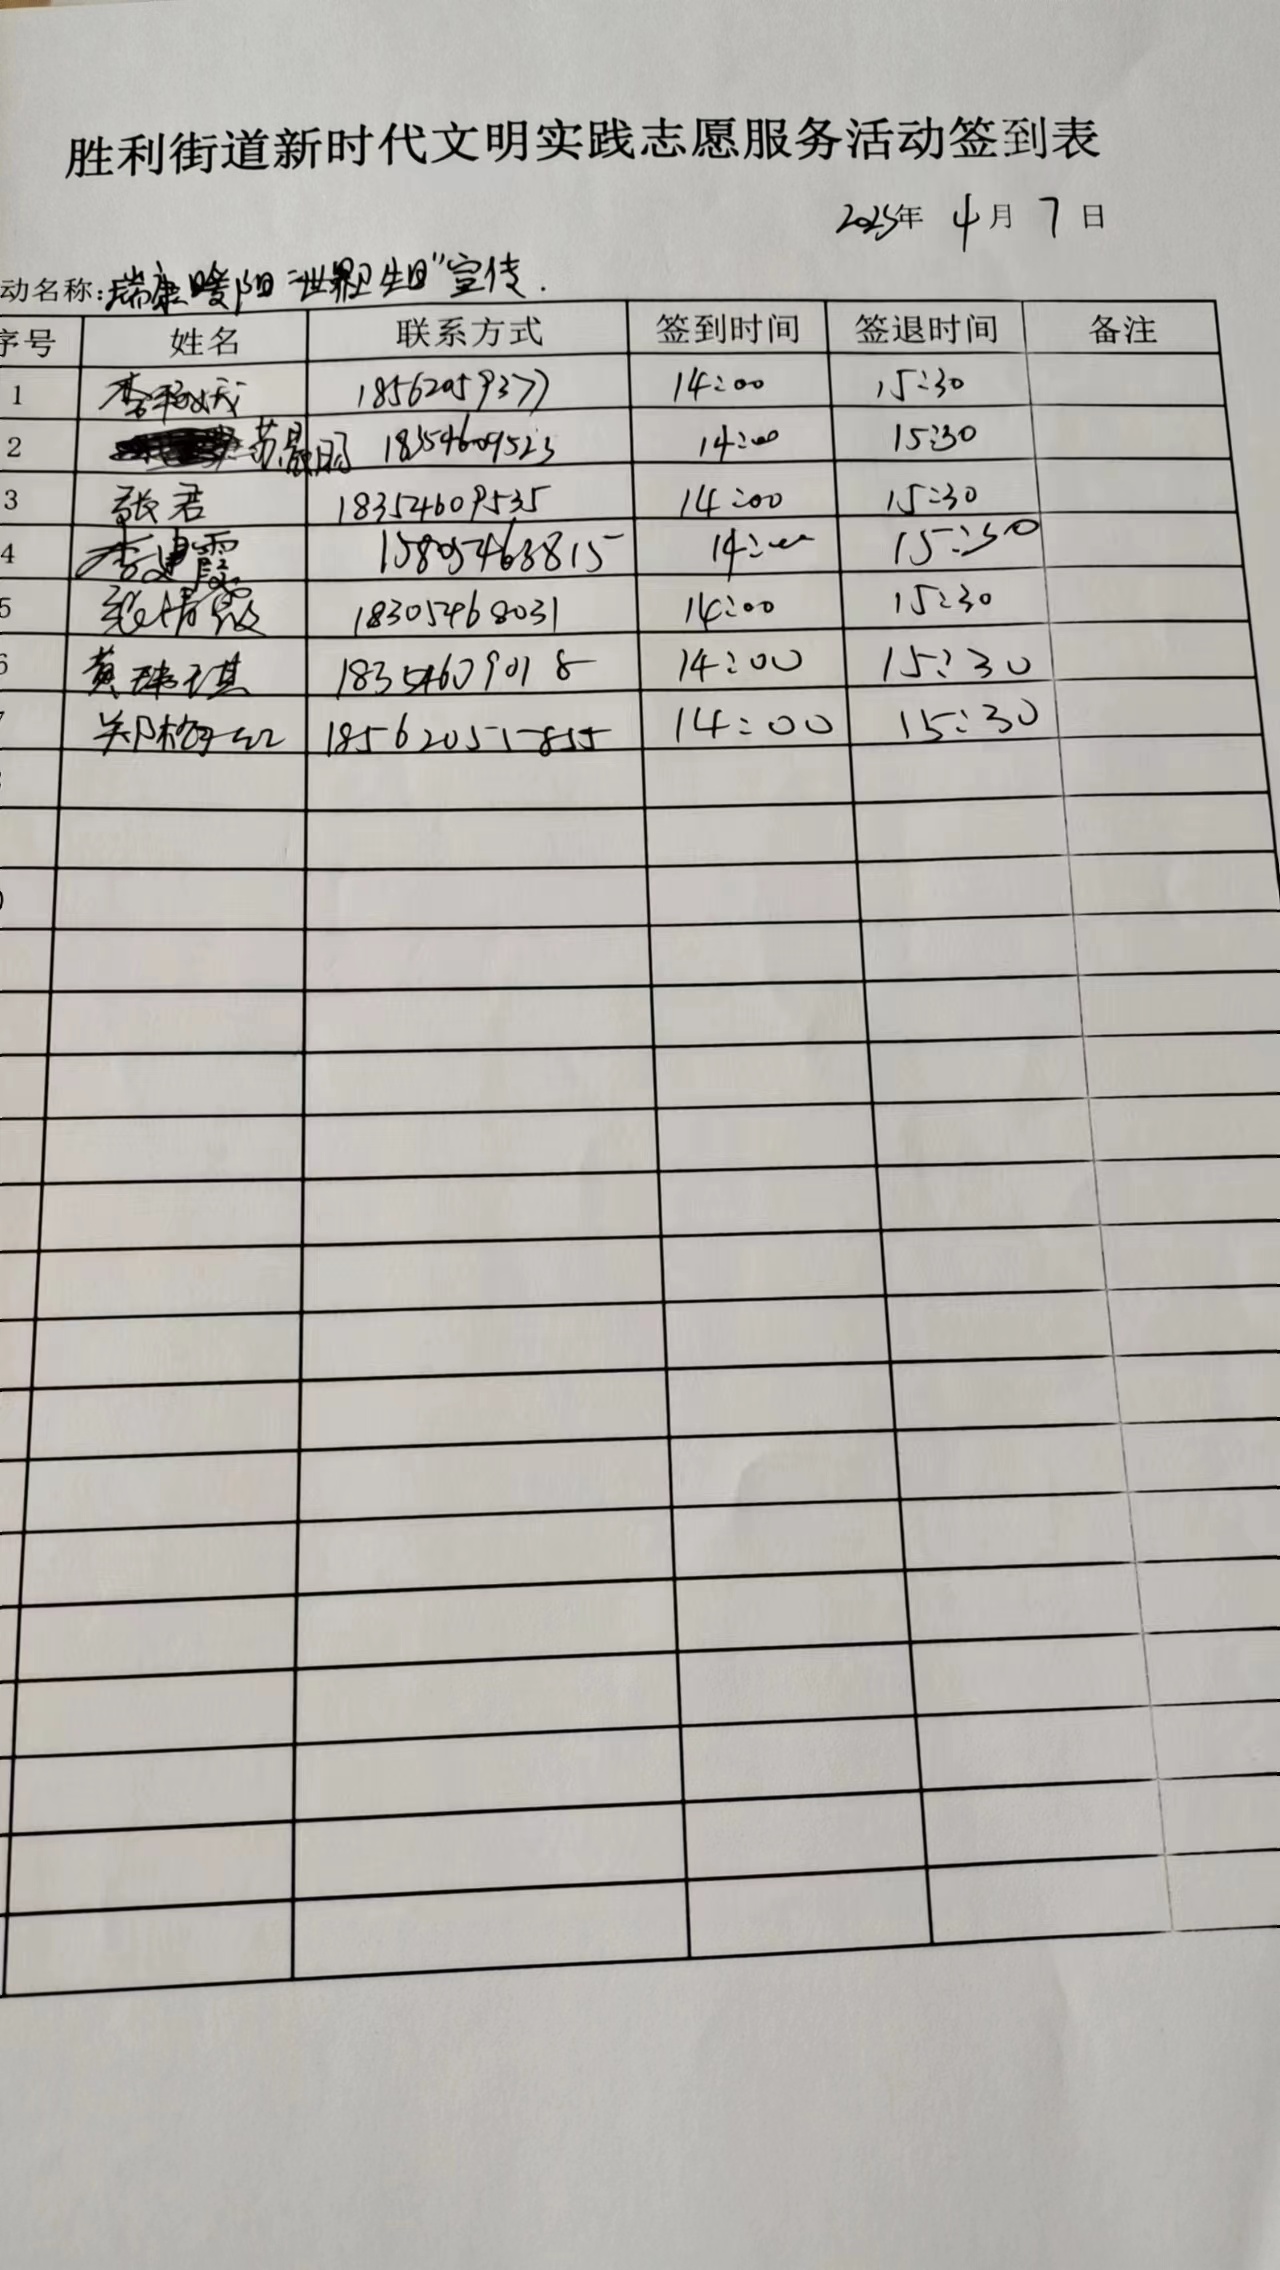 胜利街道新时代文明实践志愿服务活动签到表
2025年 4月 7日
动名称:瑞康暖阳“世界卫生日”宣传.
序号 姓名 联系方式 签到时间 签退时间 备注
1 李 18562059377 14:00 15:30
2 苏晨阳 18354609523 14:00 15:30
3 张君 18354609535 14:00 15:30
4 李建霞 15805463815 14:00 15:30
5 张倩霞 18305468031 14:00 15:30
6 黄琪 18354609018 14:00 15:30
7 14:00 15:30